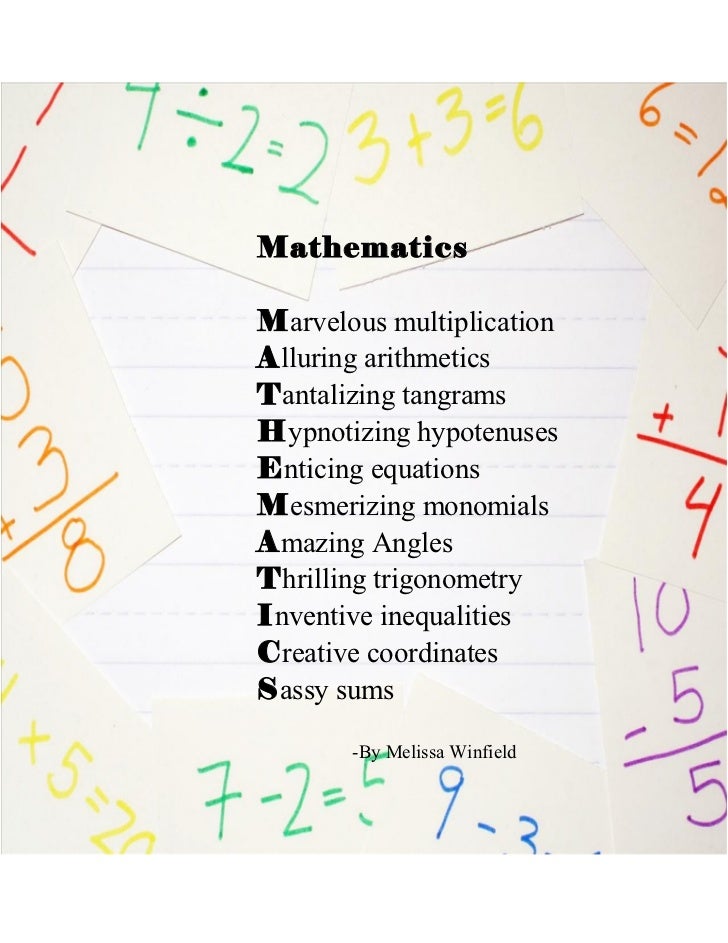 ÷2=2
3+3=6
6=
Mathematics
Marvelous multiplication
Alluring arithmetics
Tantalizing tangrams
Hypnotizing hypotenuses
Enticing equations
Mesmerizing monomials
Amazing Angles
Thrilling trigonometry
Inventive inequalities
Creative coordinates
Sassy sums
-By Melissa Winfield
3
8
+
4
10
- 5
5
+5=20
7-2=5
9-3